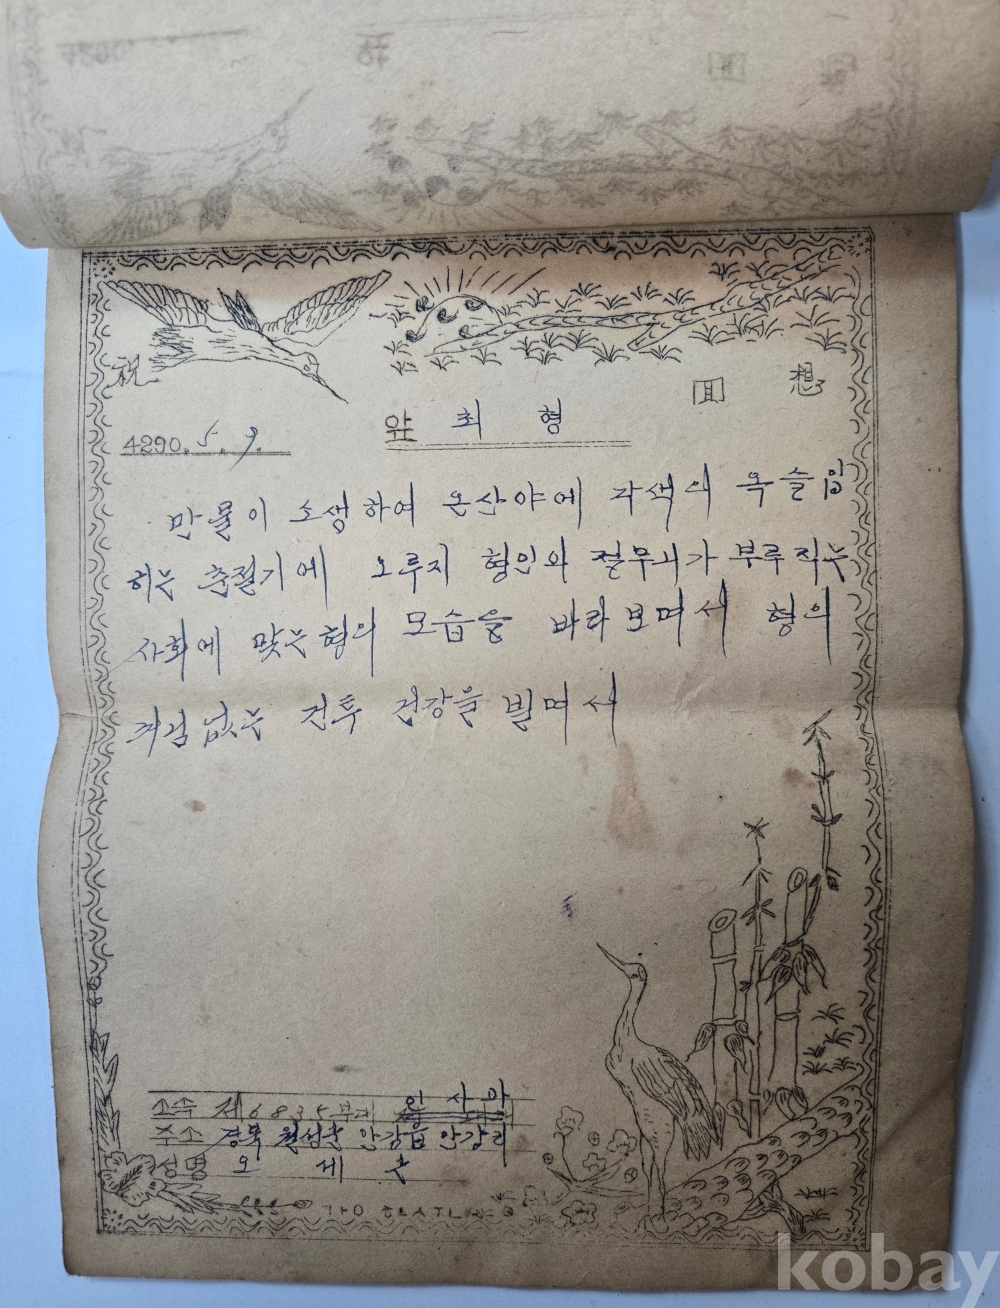 祝 回 想
4290. 5. 9.
앞 최 형
만물이 소생하여 온산야에 각색의 옥슬입
히는 춘절기에 오루지 형인와 절무늬가 부루짖는
사회에 맞는 형의 모습을 바라보며서 형의
건투 건강을 빌며서
소속 제6835부대 인사마
주소 경북 월성군 안강읍 안강리
성명 오 세
kobay